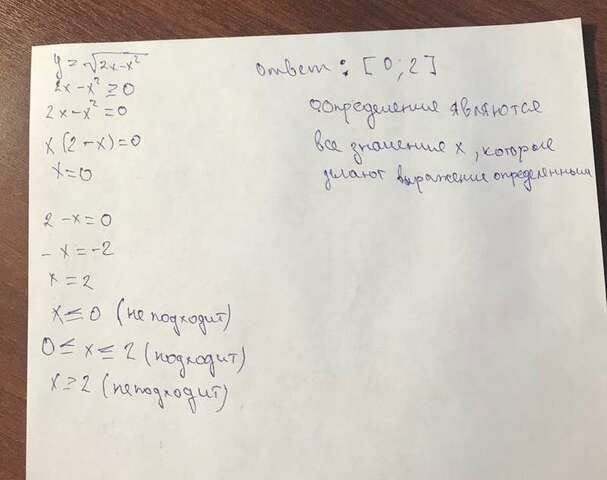 y = √2x-x²
2x - x² ≥ 0
2x - x² = 0
x (2-x) = 0
x = 0
2 - x = 0
- x = -2
x = 2
x ≤ 0 (не подходит)
0 ≤ x ≤ 2 (подходит)
x ≥ 2 (не подходит)
ответ : [ 0 ; 2 ]
определения являются
все значение x , которые
делают выражение определенным